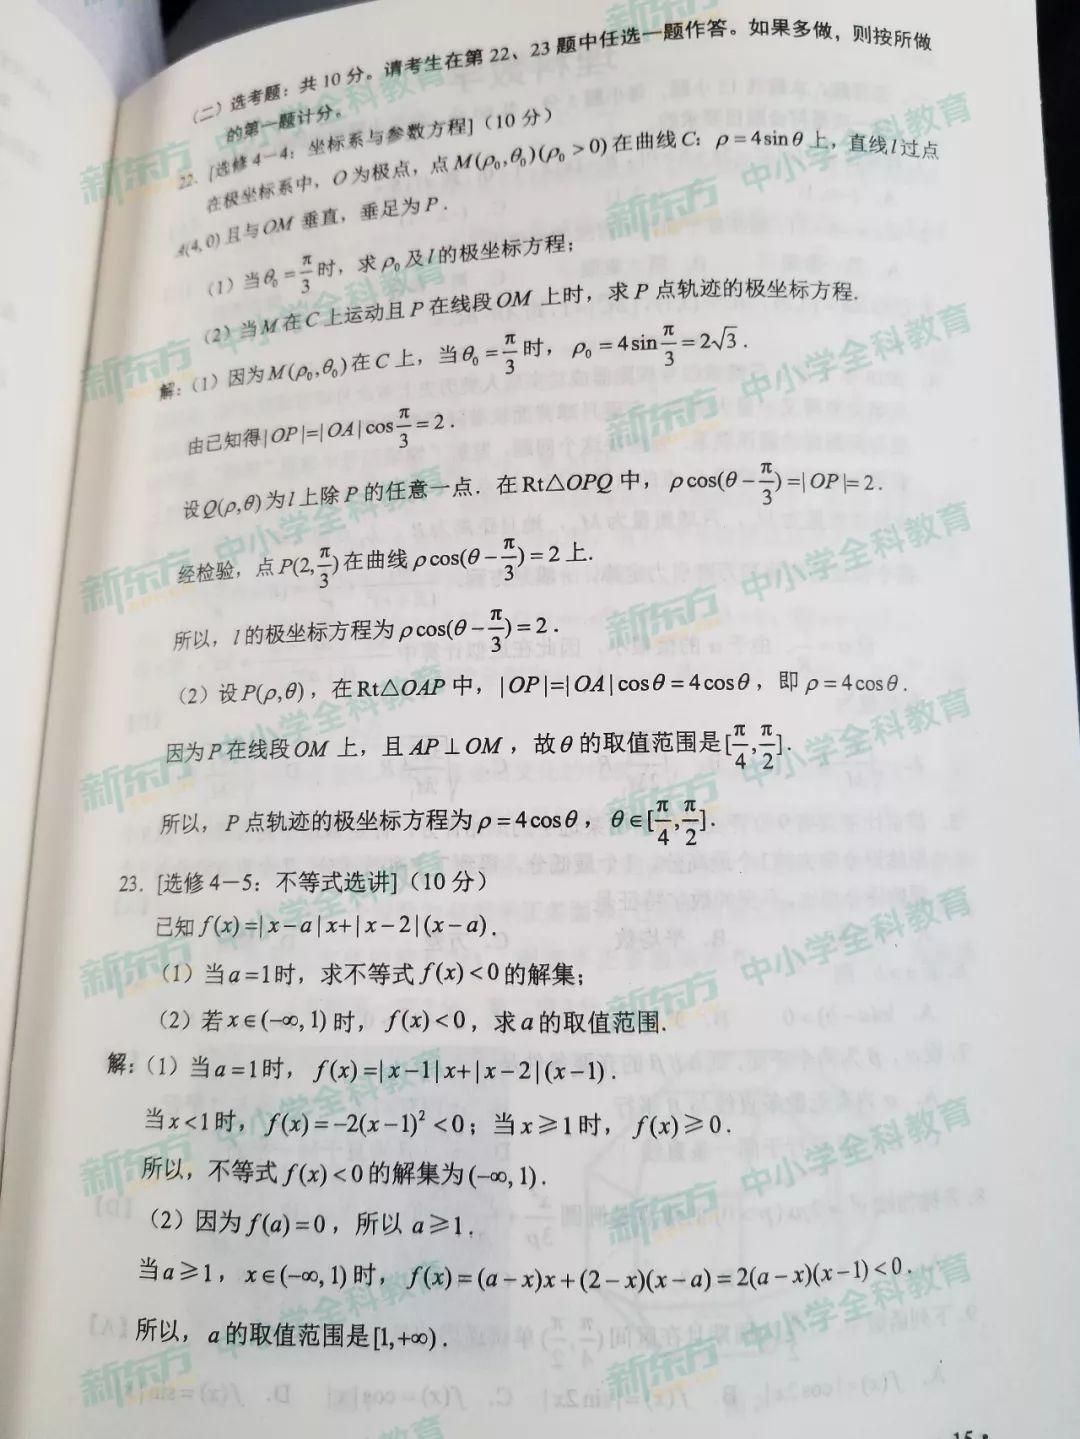 （二）选考题：共10分。请考生在第22、23题中任选一题作答。如果多做，则按所做
的第一题计分。
22. [选修4－4：坐标系与参数方程]（10分）
在极坐标系中，O为极点，点M(ρ₀,θ₀)(ρ₀>0)在曲线C：ρ=4sinθ上，直线l过点
A(4,0)且与OM垂直，垂足为P.
（1）当θ₀=π/3时，求ρ₀及l的极坐标方程；
（2）当M在C上运动且P在线段OM上时，求P点轨迹的极坐标方程.
解：（1）因为M(ρ₀,θ₀)在C上，当θ₀=π/3时，ρ₀=4sinπ/3=2√3.
由已知得|OP|=|OA|cosπ/3=2.
设Q(ρ,θ)为l上除P的任意一点. 在Rt△OPQ中，ρcos(θ-π/3)=|OP|=2.
经检验，点P(2,π/3)在曲线ρcos(θ-π/3)=2上.
所以，l的极坐标方程为ρcos(θ-π/3)=2.
（2）设P(ρ,θ)，在Rt△OAP中，|OP|=|OA|cosθ=4cosθ，即ρ=4cosθ.
因为P在线段OM上，且AP⊥OM，故θ的取值范围是[π/4,π/2].
所以，P点轨迹的极坐标方程为ρ=4cosθ，θ∈[π/4,π/2].
23. [选修4－5：不等式选讲]（10分）
已知f(x)=|x-a|x+|x-2|(x-a).
（1）当a=1时，求不等式f(x)<0的解集；
（2）若x∈(-∞,1)时，f(x)<0，求a的取值范围.
解：（1）当a=1时，f(x)=|x-1|x+|x-2|(x-1).
当x<1时，f(x)=-2(x-1)²<0；当x⩾1时，f(x)⩾0.
所以，不等式f(x)<0的解集为(-∞,1).
（2）因为f(a)=0，所以a⩾1.
当a⩾1，x∈(-∞,1)时，f(x)=(a-x)x+(2-x)(x-a)=2(a-x)(x-1)<0.
所以，a的取值范围是[1,+∞).
新东方 中小学全科教育